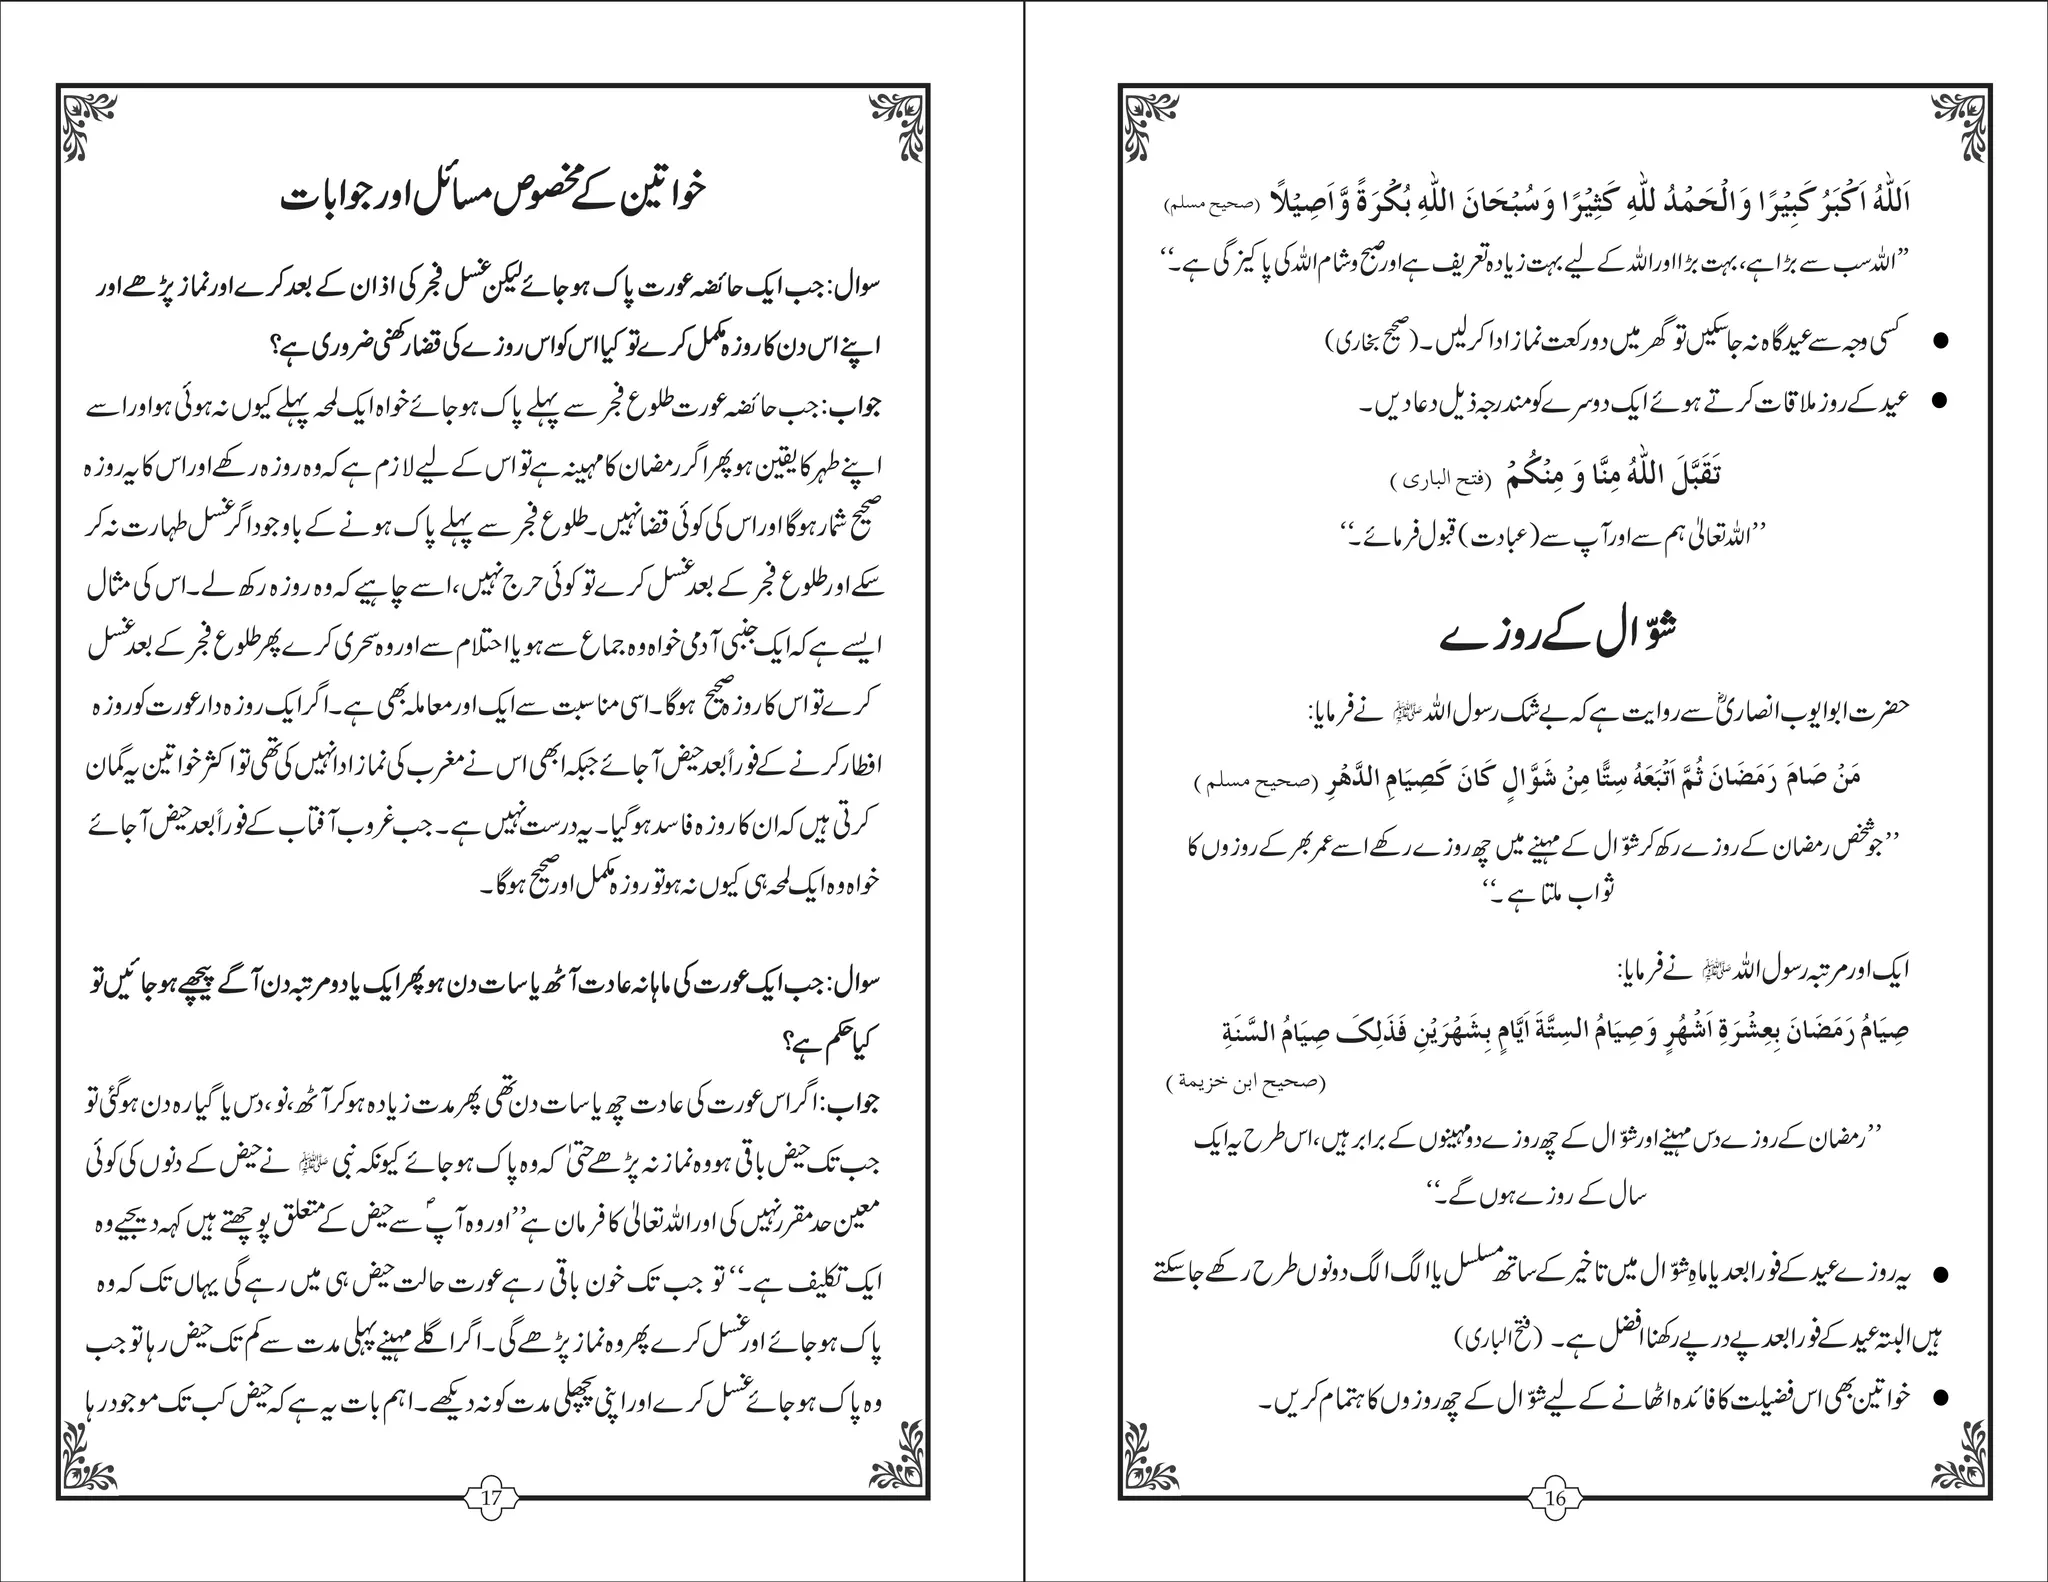 اَللّٰهُ اَكْبَرُ كَبِيْرًا وَالْحَمْدُ لِلّٰهِ كَثِيْرًا وَسُبْحَانَ اللّٰهِ بُكْرَةً وَّ اَصِيْلًا (صحیح مسلم)
”اللہ سب سے بڑا ہے، بہت بڑا اور اللہ کے لیے بہت زیادہ تعریف ہے اور صبح و شام اللہ کی پاکیزگی ہے۔“
● کسی وجہ سے عید گاہ نہ جا سکیں تو گھر میں دو رکعت نماز ادا کر لیں۔ (صحیح بخاری)
● عید کے روز ملاقات کرتے ہوئے ایک دوسرے کو مندرجہ ذیل دعا دیں۔
تَقَبَّلَ اللّٰهُ مِنَّا وَ مِنْكُمْ (فتح الباری)
”اللہ تعالیٰ ہم سے اور آپ سے (عبادت) قبول فرمائے۔“
شوّال کے روزے
حضرت ابو ایوب انصاریؓ سے روایت ہے کہ بے شک رسول اللہ ﷺ نے فرمایا:
مَنْ صَامَ رَمَضَانَ ثُمَّ اَتْبَعَهُ سِتًّا مِنْ شَوَّالٍ كَانَ كَصِيَامِ الدَّهْرِ (صحیح مسلم)
”جو شخص رمضان کے روزے رکھ کر شوّال کے مہینے میں چھ روزے رکھے اسے عمر بھر کے روزوں کا
ثواب ملتا ہے۔“
ایک اور مرتبہ رسول اللہ ﷺ نے فرمایا:
صِيَامُ رَمَضَانَ بِعِشْرَةِ اَشْهُرٍ وَصِيَامُ السِتَّةَ اَيَّامٍ بِشَهْرَيْنِ فَذَلِکَ صِيَامُ السَّنَةِ
(صحیح ابن خزیمة)
”رمضان کے روزے دس مہینے اور شوّال کے چھ روزے دو مہینوں کے برابر ہیں، اس طرح یہ ایک
سال کے روزے ہوں گے۔“
● یہ روزے عید کے فوراً بعد یا ماہِ شوّال میں تاخیر کے ساتھ مسلسل یا الگ الگ دونوں طرح رکھے جا سکتے
ہیں البتہ عید کے فوراً بعد پے در پے رکھنا افضل ہے۔ (فتح الباری)
● خواتین بھی اس فضیلت کا فائدہ اٹھانے کے لیے شوّال کے چھ روزوں کا اہتمام کریں۔
16
خواتین کے مخصوص مسائل اور جوابات
سوال: جب ایک حائضہ عورت پاک ہو جائے لیکن غسل فجر کی اذان کے بعد کرے اور نماز پڑھے اور
اپنے اس دن کا روزہ مکمل کرے تو کیا اس کو اس روزے کی قضا رکھنی ضروری ہے؟
جواب: جب حائضہ عورت طلوع فجر سے پہلے پاک ہو جائے خواہ ایک لمحہ پہلے کیوں نہ ہوئی ہو اور اسے
اپنے طہر کا یقین ہو پھر اگر رمضان کا مہینہ ہے تو اس کے لیے لازم ہے کہ وہ روزہ رکھے اور اس کا یہ روزہ
صحیح شمار ہوگا اور اس کی کوئی قضا نہیں۔ طلوع فجر سے پہلے پاک ہونے کے باوجود اگر غسل طہارت نہ کر
سکے اور طلوع فجر کے بعد غسل کرے تو کوئی حرج نہیں، اسے چاہیے کہ وہ روزہ رکھ لے۔ اس کی مثال
ایسے ہے کہ ایک جنبی آدمی خواہ وہ جماع سے ہو یا احتلام سے اور وہ سحری کرے پھر طلوع فجر کے بعد غسل
کرے تو اس کا روزہ صحیح ہوگا۔ اسی مناسبت سے ایک اور معاملہ بھی ہے۔ اگر ایک روزہ دار عورت کو روزہ
افطار کرنے کے فوراً بعد حیض آ جائے جبکہ ابھی اس نے مغرب کی نماز ادا نہیں کی تھی تو اکثر خواتین یہ گمان
کرتی ہیں کہ ان کا روزہ فاسد ہوگیا۔ یہ درست نہیں ہے۔ جب غروب آفتاب کے فوراً بعد حیض آ جائے
خواہ وہ ایک لمحہ ہی کیوں نہ ہو تو روزہ مکمل اور صحیح ہوگا۔
سوال: جب ایک عورت کی ماہانہ عادت آٹھ یا سات دن ہو پھر ایک یا دو مرتبہ دن آگے پیچھے ہو جائیں تو
کیا حکم ہے؟
جواب: اگر اس عورت کی عادت چھ یا سات دن تھی پھر مدت زیادہ ہو کر آٹھ، نو، دس یا گیارہ دن ہوگئی تو
جب تک حیض باقی ہو وہ نماز نہ پڑھے حتیٰ کہ وہ پاک ہو جائے کیونکہ نبی ﷺ نے حیض کے دنوں کی کوئی
معین حد مقرر نہیں کی اور اللہ تعالیٰ کا فرمان ہے ”اور وہ آپؐ سے حیض کے متعلق پوچھتے ہیں کہہ دیجیے وہ
ایک تکلیف ہے۔“ تو جب تک خون باقی رہے عورت حالت حیض ہی میں رہے گی یہاں تک کہ وہ
پاک ہو جائے اور غسل کرے پھر وہ نماز پڑھے گی۔ اگر اگلے مہینے پہلی مدت سے کم تک حیض رہا تو جب
وہ پاک ہو جائے غسل کرے اور اپنی پچھلی مدت کو نہ دیکھے۔ اہم بات یہ ہے کہ حیض کب تک موجود رہا
17